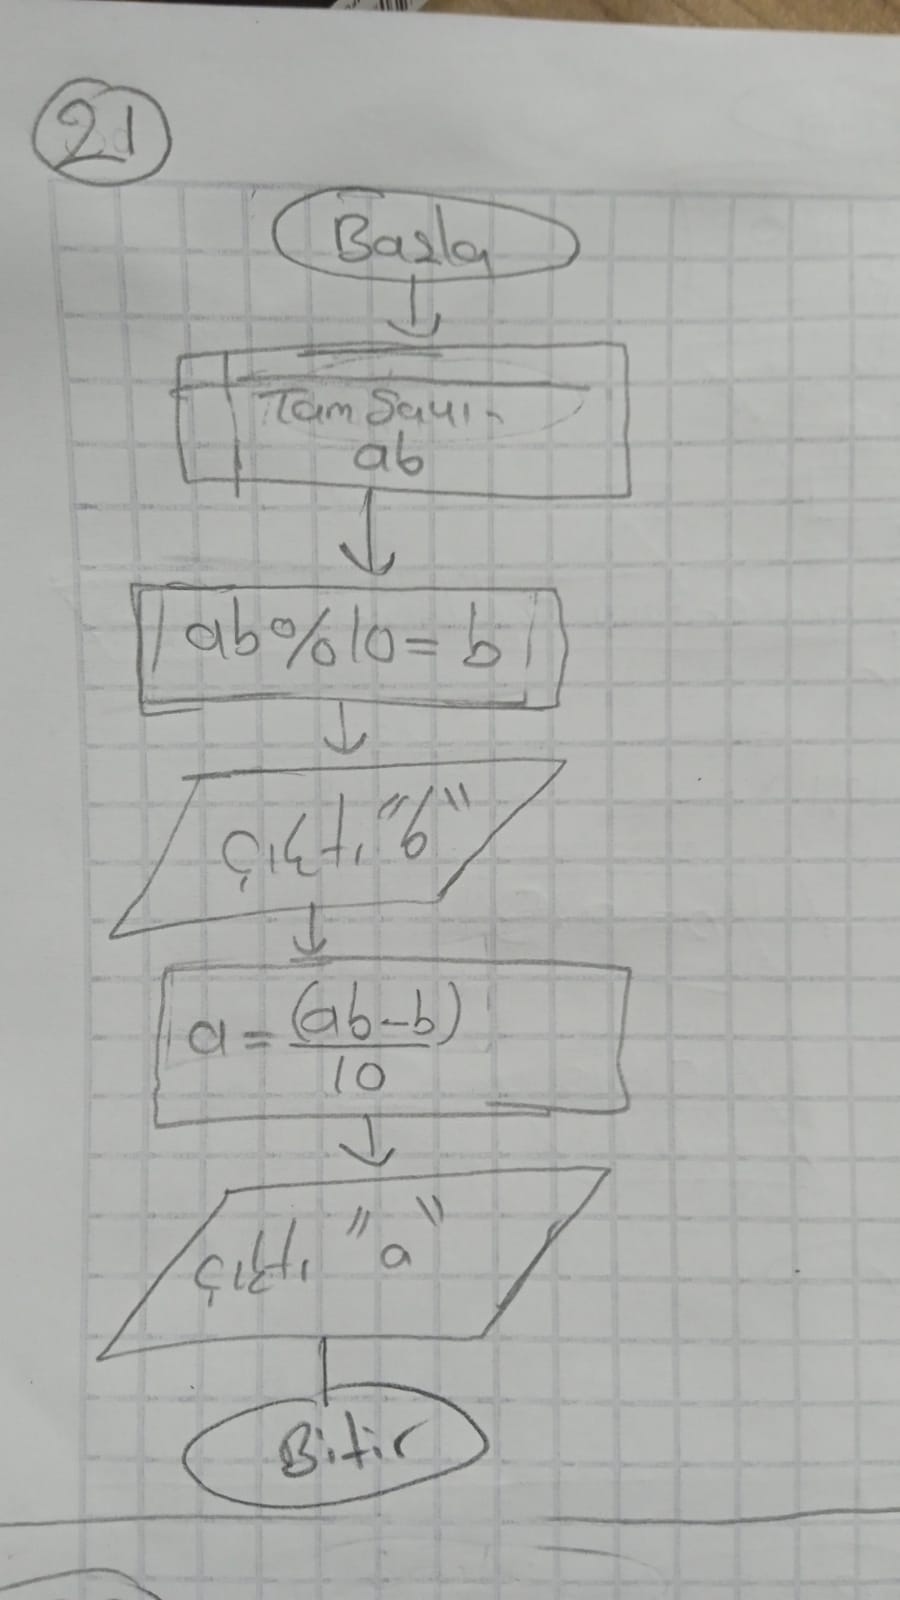 21
Başla
Tam Sayı
ab
ab%10=b
Çıktı "b"
a = (ab-b)
10
Çıktı "a"
Bitir